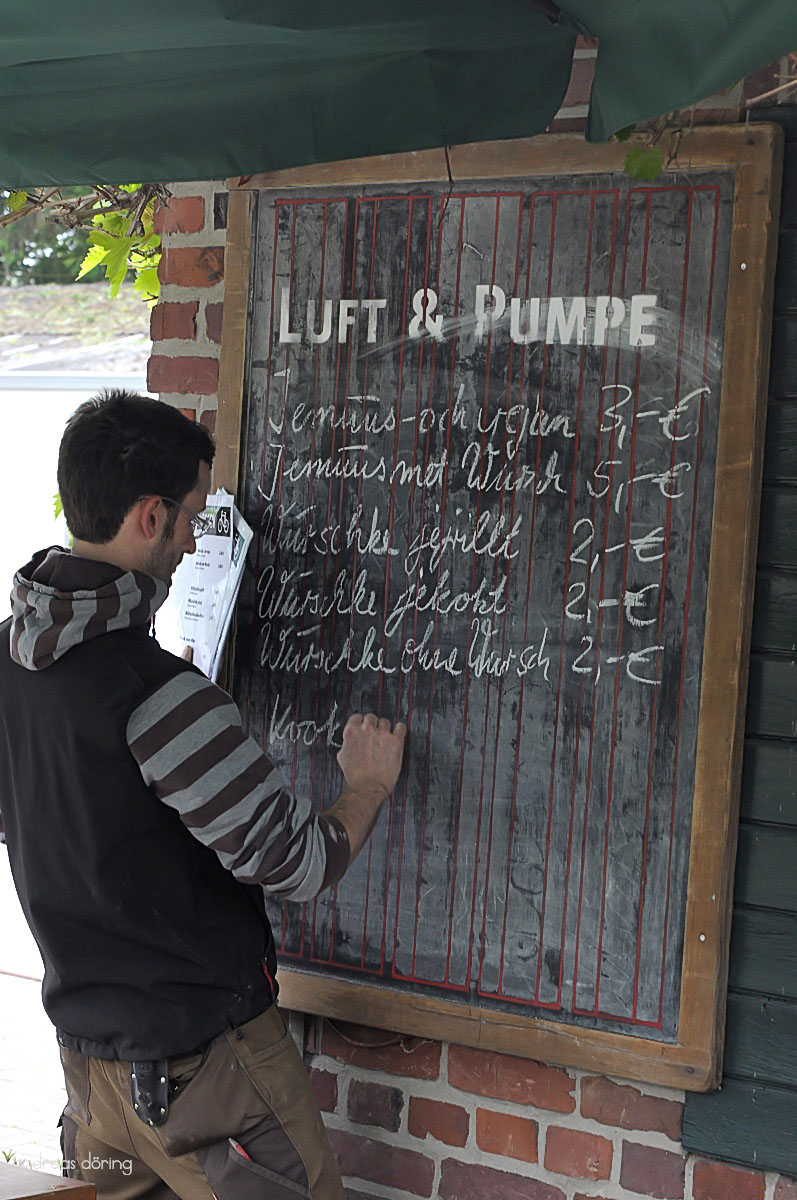 LUFT & PUMPE
Jemüüs-och vejan 3,-€
Jemüüs mot Wursch 5,-€
Würschke jejrillt 2,-€
Würschke jekokt 2,-€
Würschke ohne Wursch 2,-€
Krok
andreas döring